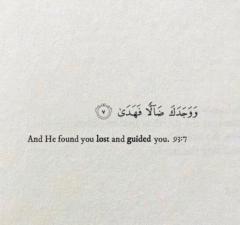 وَوَجَدَكَ ضَالًّا فَهَدَىٰ ٧
And He found you lost and guided you. 93:7